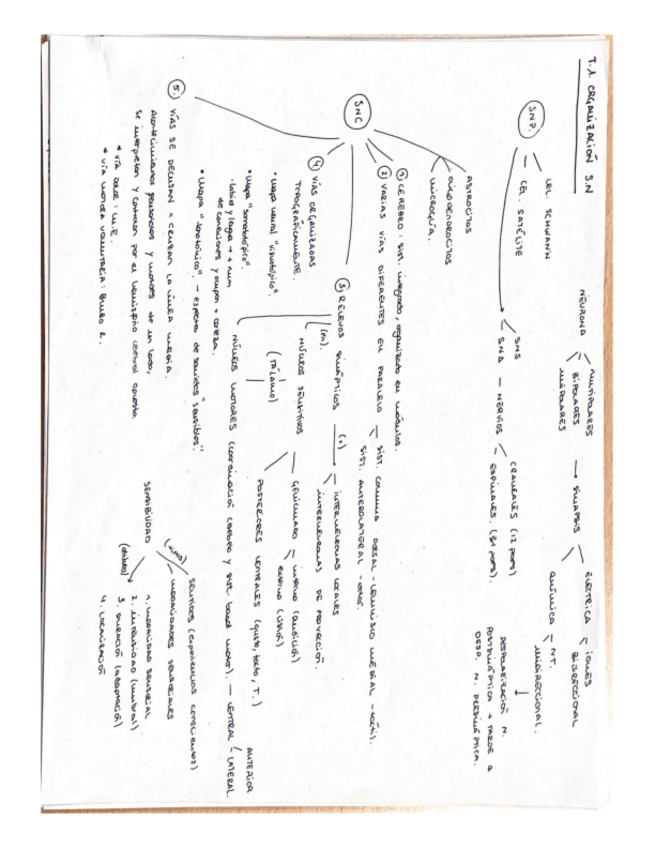 T.1. ORGANIZACIÓN S.N
NEURONA
MULTIPOLARES
BIPOLARES
UNIPOLARES
SINAPSIS
ELÉCTRICA
IONES
BIDIRECCIONAL
QUÍMICA
NT.
UNIDIRECCIONAL.
DESPOLARIZACIÓN N.
POSTSINÁPTICA + TARDE Q
DESP. N. PRESINÁPTICA.
SNP.
CEL. SCHWANN
CEL. SATÉLITE
SNS
SNA — NERVIOS
CRANEALES (12 pares)
ESPINALES. (31 pares).
SNC
ASTROCITOS
OLIGODENDROCITOS
MICROGLÍA.
① CEREBRO: sist. integrado, organizado en módulos.
② VARIAS VÍAS DIFERENTES EN PARALELO
SIST. COLUMNA DORSAL - LEMNISCO MEDIAL -
SIST. ANTEROLATERAL - dolor.
③ RELEVOS SINÁPTICOS
INTERNEURONAS LOCALES
INTERNEURONAS DE PROYECCIÓN.
NÚCLEOS SENSITIVOS
(TÁLAMO)
GENICULADO
INTERNO (AUDICIÓN)
EXTERNO (VISIÓN)
POSTERIORES VENTRALES (gusto, tacto, T.)
NÚCLEOS MOTORES (coordinación cerebro y motor). — VENTRAL
ANTERIOR
LATERAL.
④ VÍAS ORGANIZADAS
TOPOGRÁFICAMENTE.
• Mapa neural "visuotópico"
• Mapa "somatotópico"
- labio y lengua → + num
de conexiones y ocupan + corteza.
• Mapa "tonotópico" — espectro de sonidos "sensibles".
⑤ VÍAS SE DECUSAN = CRUZAN LA LÍNEA MEDIA.
Acontecimientos sensoriales y motores de un lado,
se interpretan y controlan por el hemisferio cerebral opuesto.
* VÍA DOLOR: M.E.
* VÍA MOTORA VOLUNTARIA: BULBO R.
SENSIBILIDAD
SENTIDOS (experiencias conscientes)
MODALIDADES SENSORIALES
1. MODALIDAD SENSORIAL
2. INTENSIDAD (umbral)
3. DURACIÓN (adaptación)
4. LOCALIZACIÓN